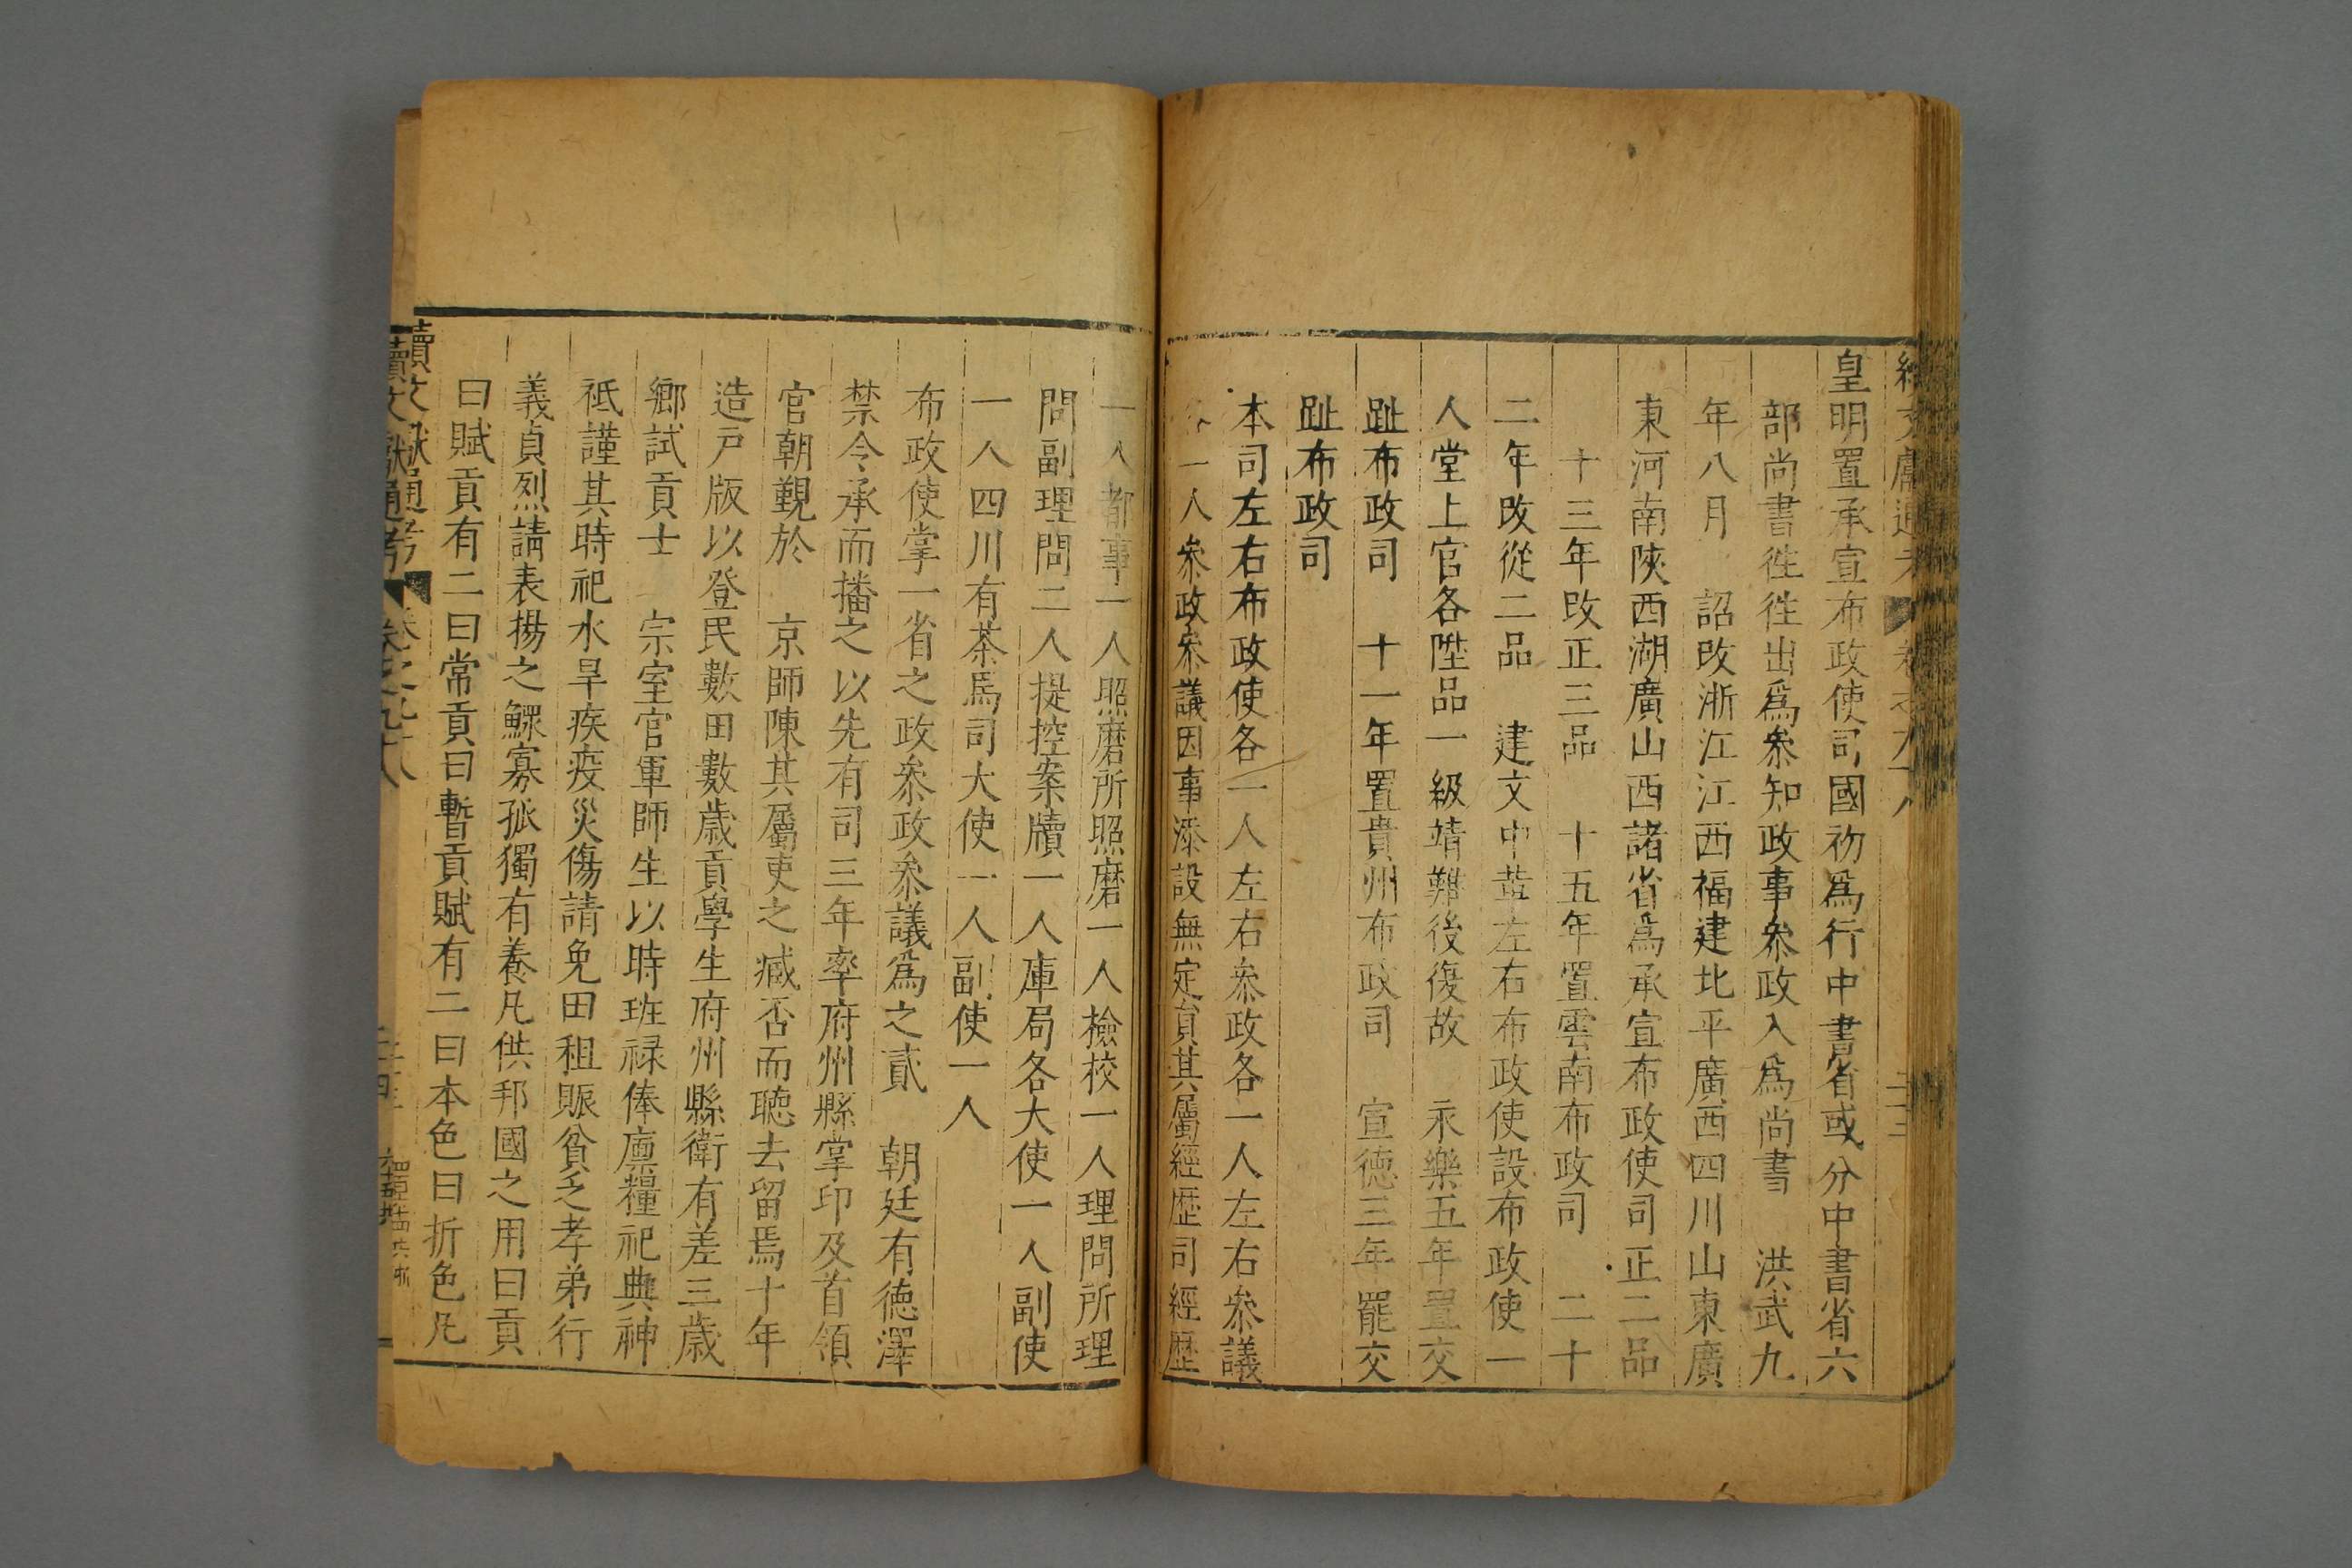 皇明置承宣布政使司國初爲行中書省或分中書省六
部尚書徃徃出爲叅知政事叅政入爲尚書 洪武九
年八月 詔改浙江江西福建北平廣西四川山東廣
東河南陝西湖廣山西諸省爲承宣布政使司正二品
十三年改正三品 十五年置雲南布政司 二十
二年改從二品 建文中革左右布政使設布政使一
人堂上官各陞品一級靖難後復故 永樂五年置交
趾布政司 十一年置貴州布政司 宣徳三年罷交
趾布政司
本司左右布政使各一人左右叅政各一人左右叅議
一人叅政叅議因事添設無定員其屬經歷司經歷
一人都事一人照磨所照磨一人檢校一人理問所理
問副理問二人提控案牘一人庫局各大使一人副使
一人四川有茶馬司大使一人副使一人
布政使掌一省之政叅政叅議爲之貳 朝廷有徳澤
禁令承而播之以先有司三年率府州縣掌印及首領
官朝覲於 京師陳其屬吏之臧否而聽去留焉十年
造戸版以登民數田數歳貢學生府州縣衛有差三歳
鄉試貢士 宗室官軍師生以時班禄俸廩糧祀典神
祗謹其時祀水旱疾疫災傷請免田租賑貧乏孝弟行
義貞烈請表揚之鰥寡孤獨有養凡供邦國之用曰貢
曰賦貢有二曰常貢曰暫貢賦有二曰本色曰折色凡
續文獻通考 卷之九十八